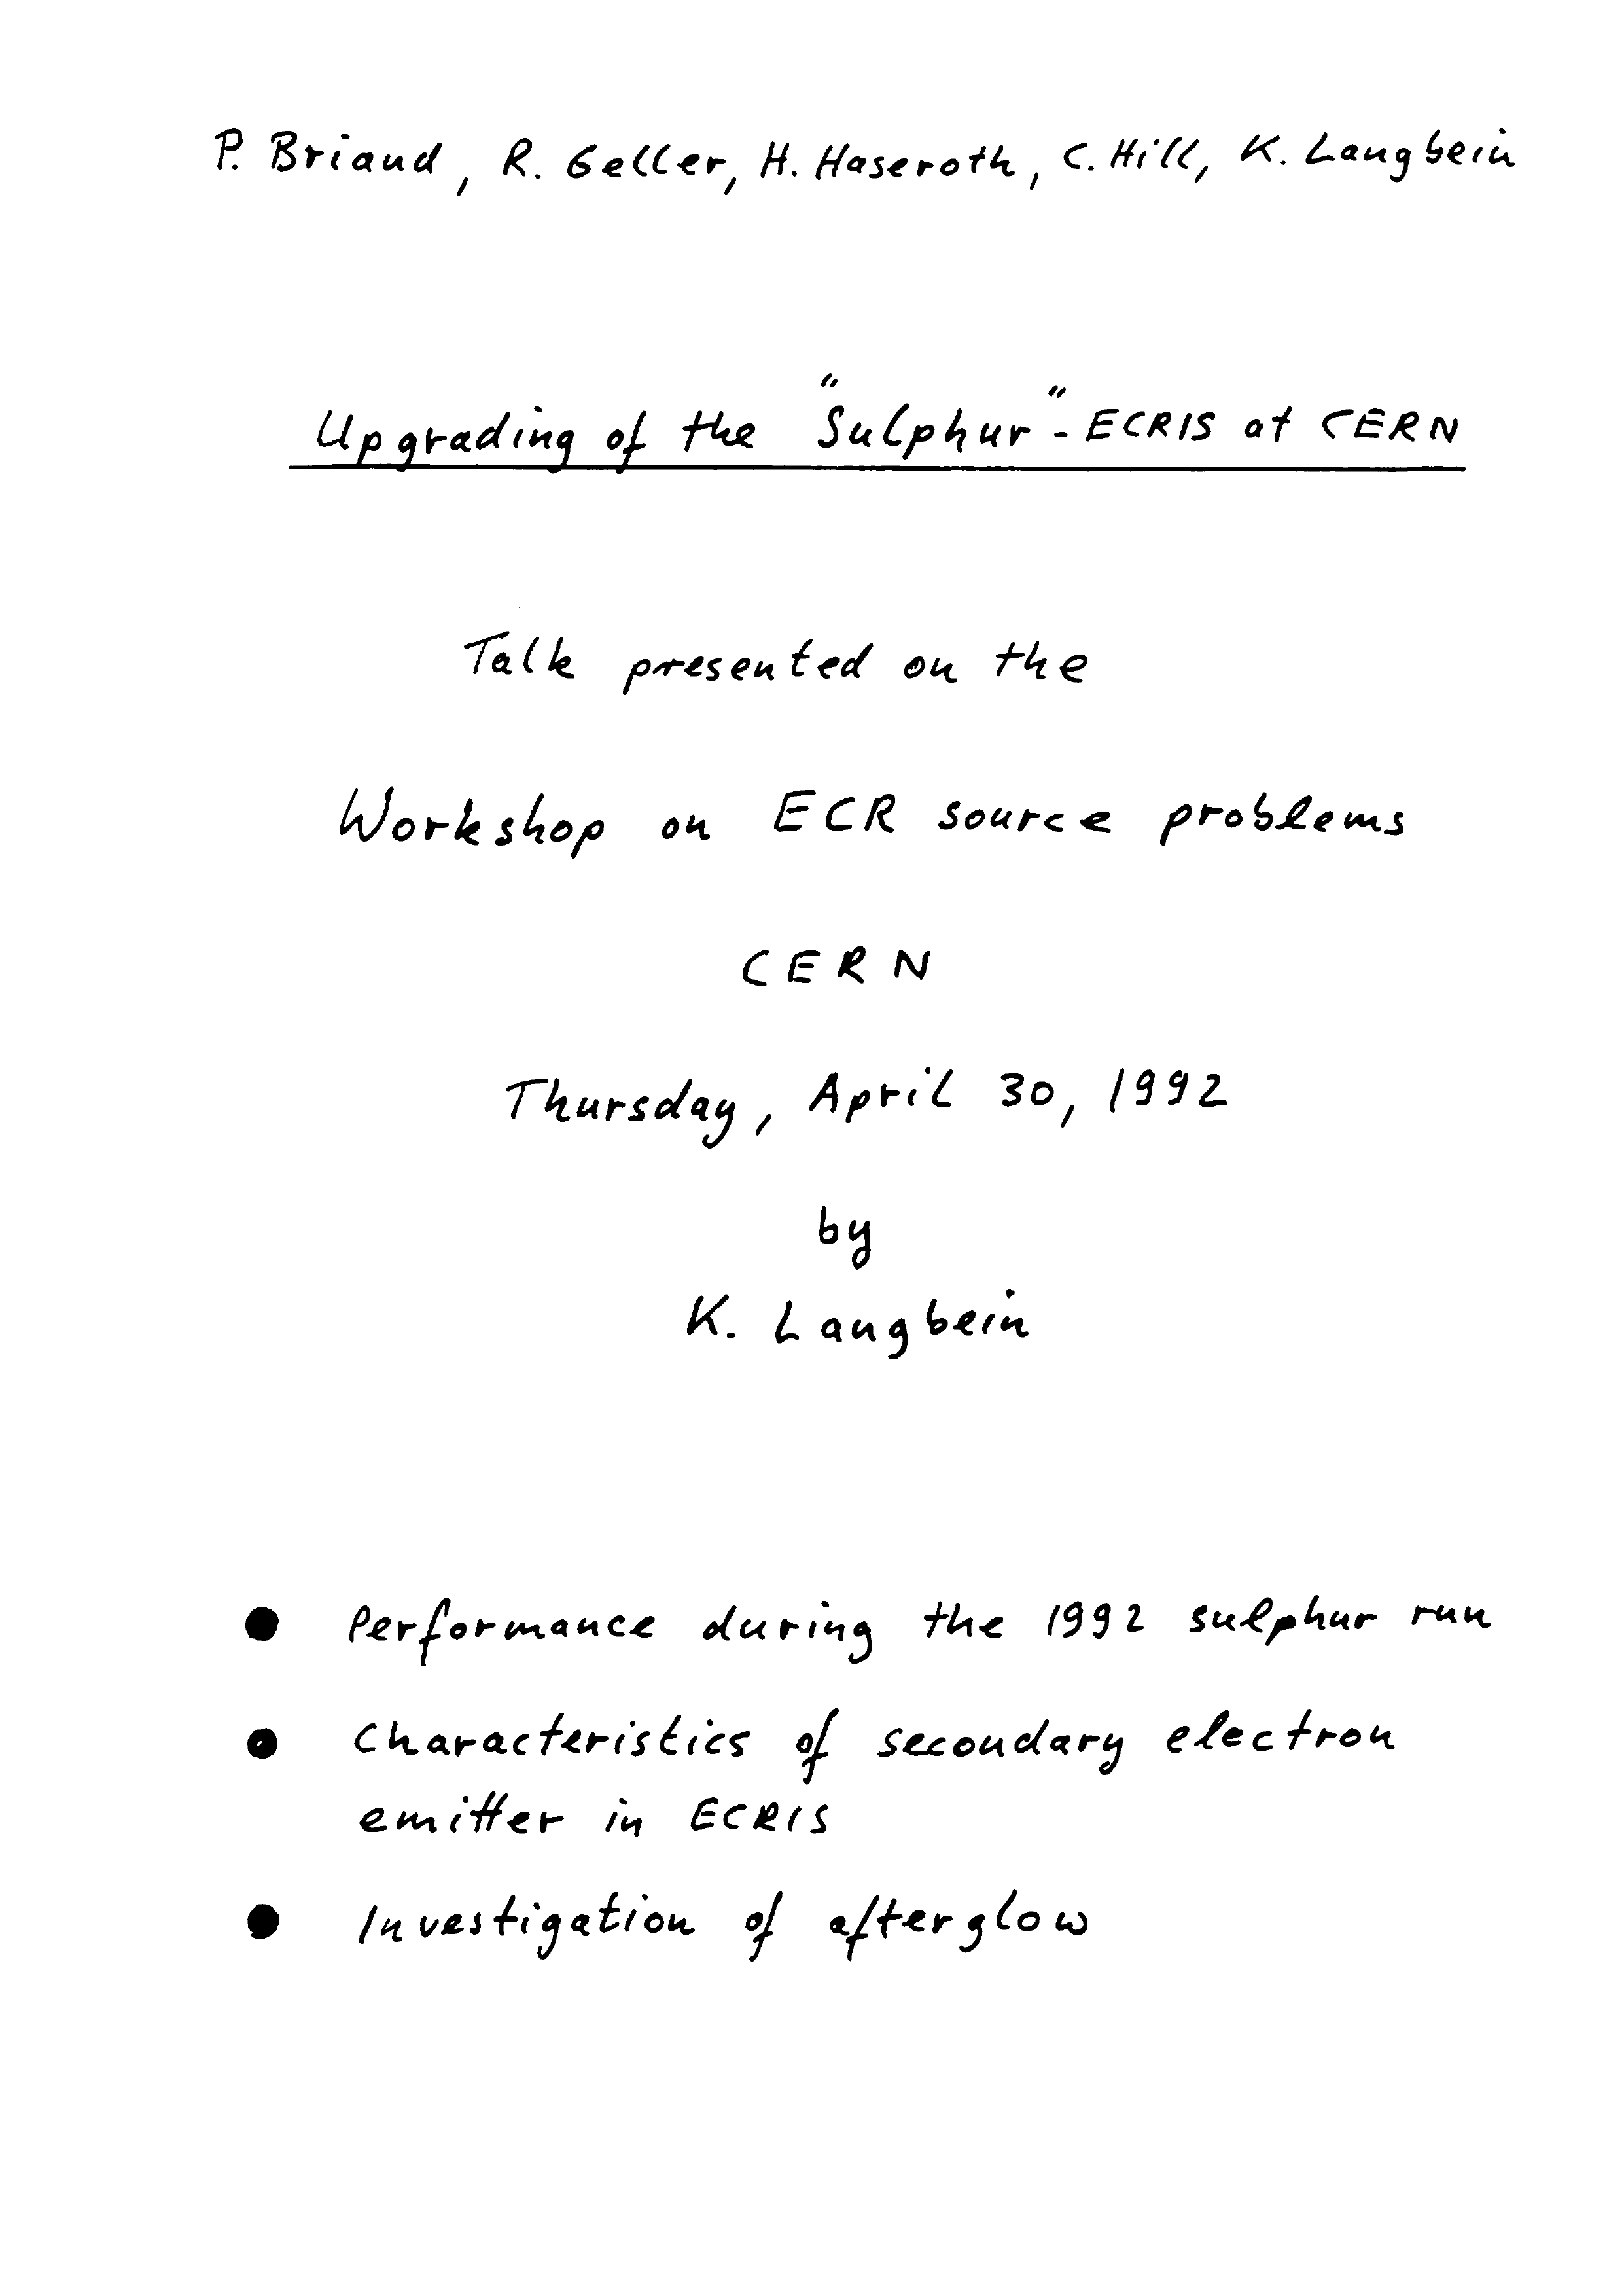 P. Briand, R. Geller, H. Haseroth, C. Hill, K. Langbein
Upgrading of the "Sulphur"- ECRIS at CERN
Talk presented on the
Workshop on ECR source problems
CERN
Thursday, April 30, 1992
by
K. Langbein
● Performance during the 1992 sulphur run
● Characteristics of secondary electron
emitter in ECRIS
● Investigation of afterglow